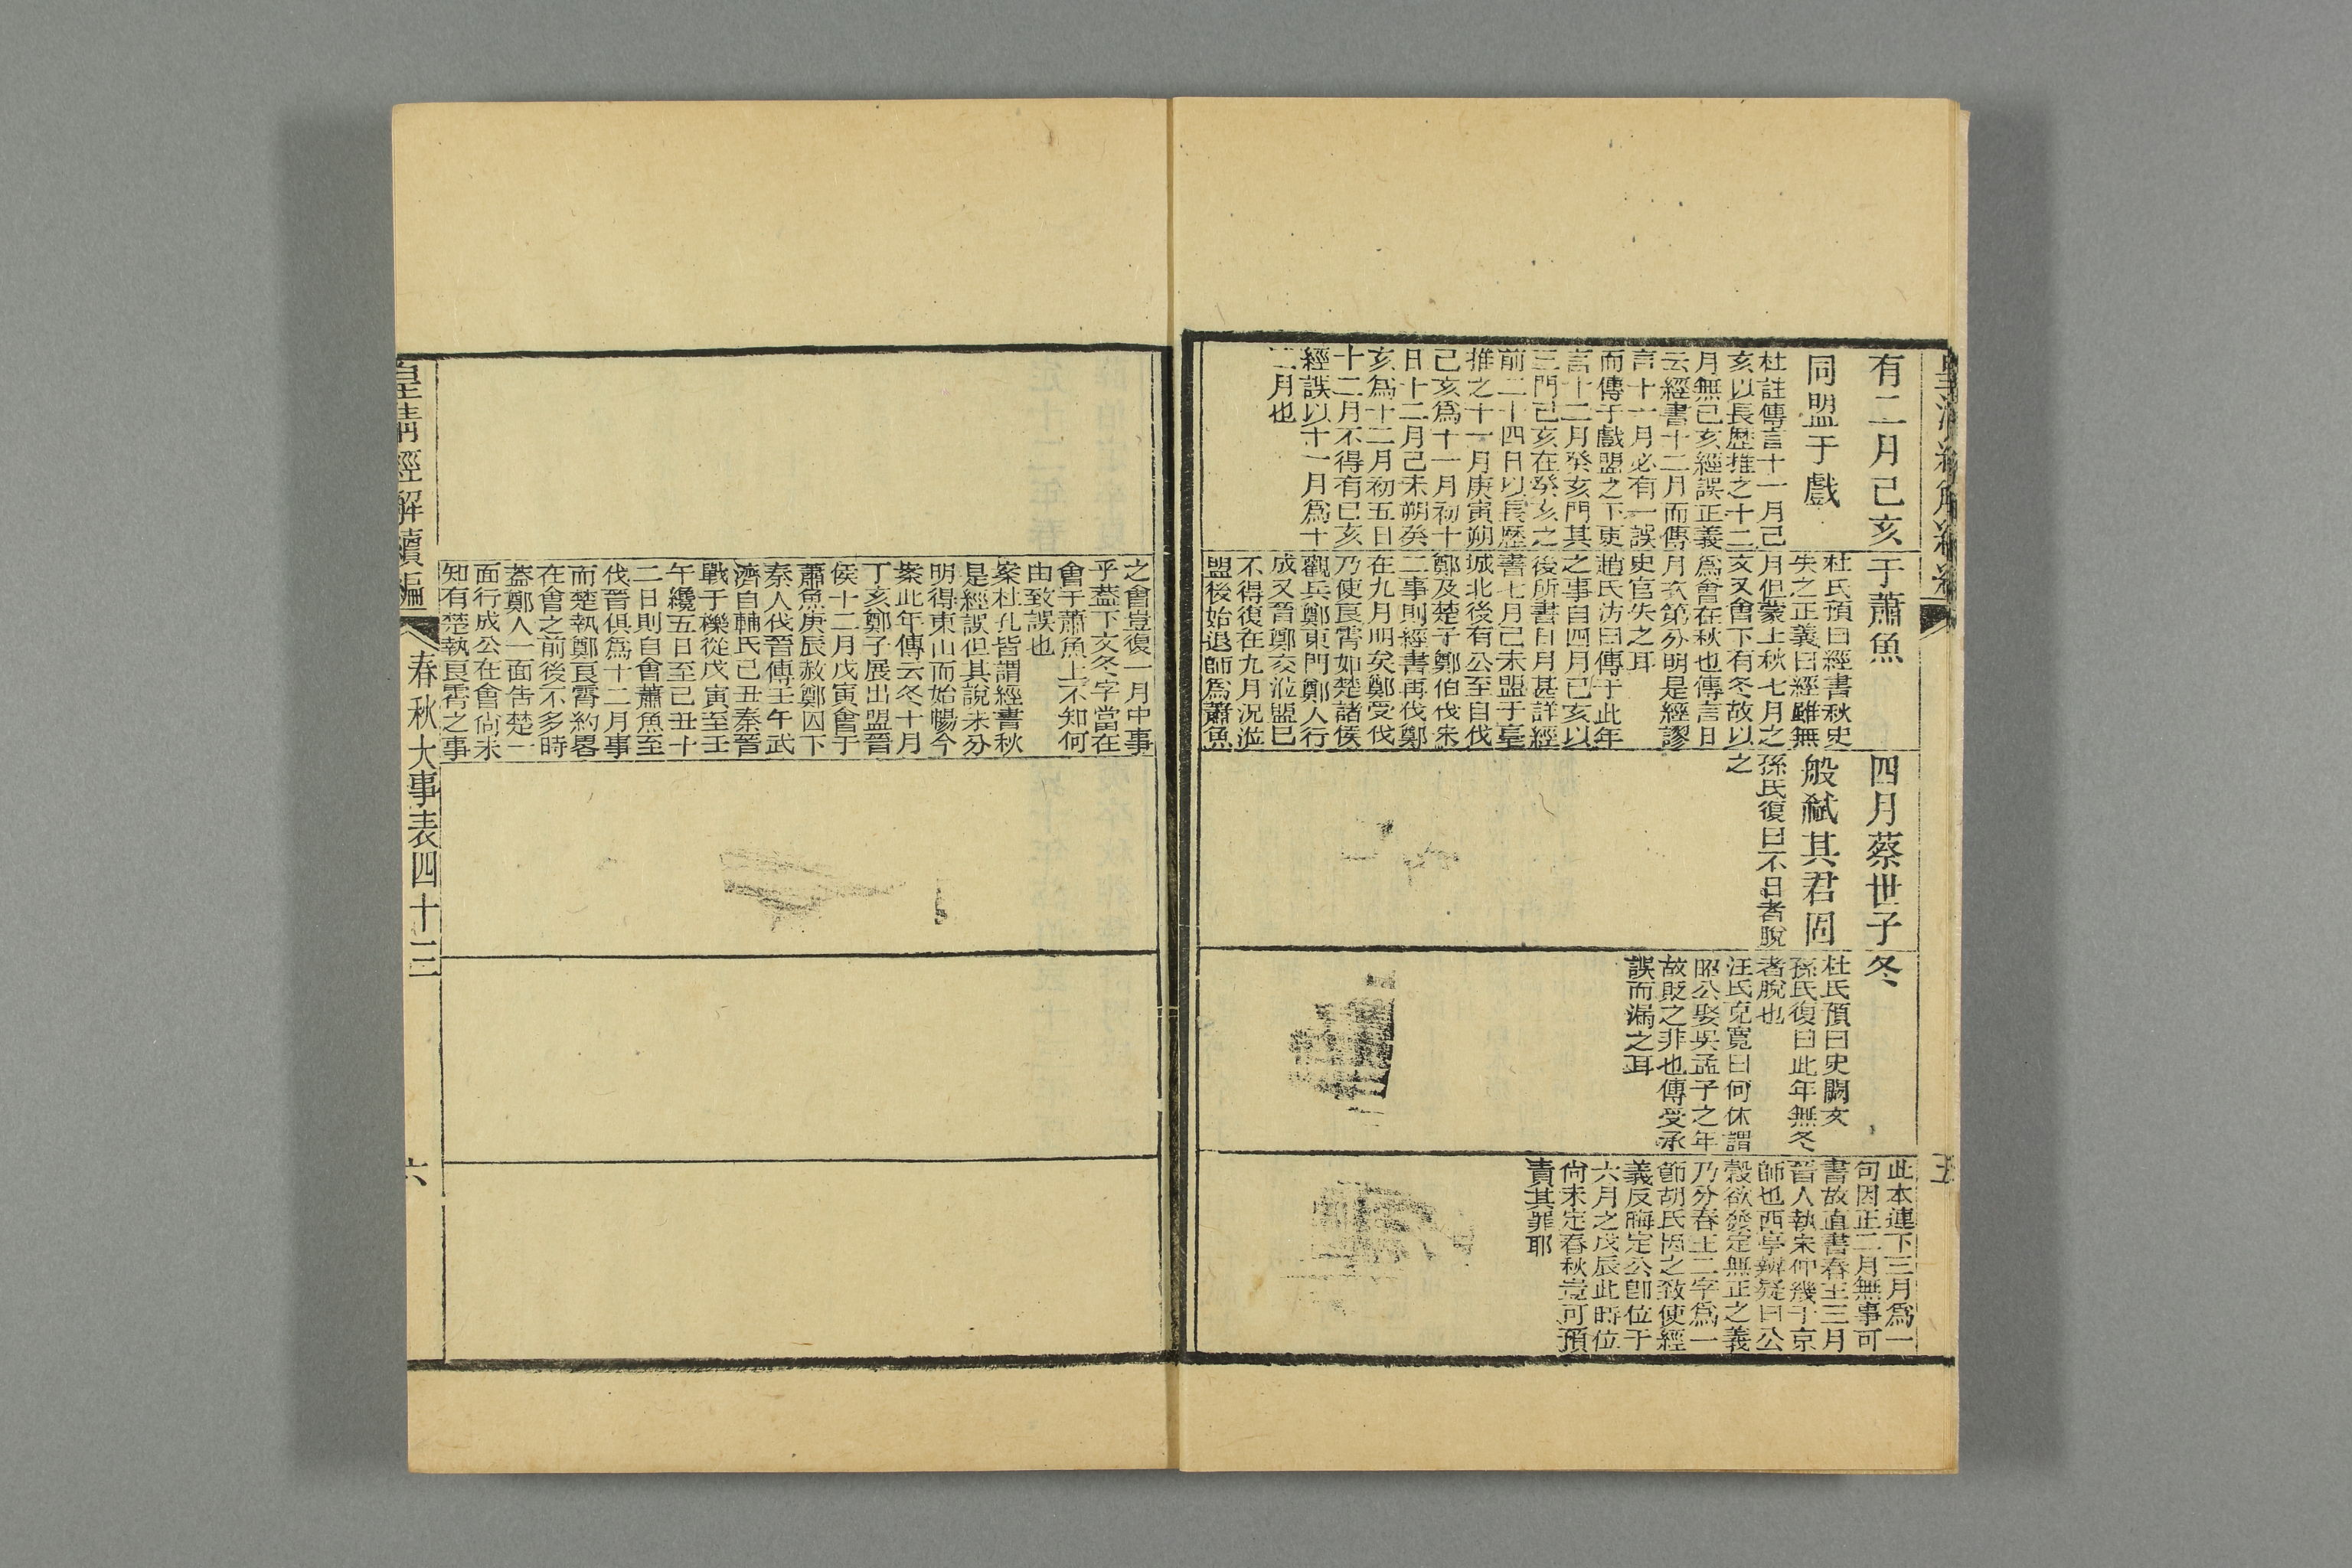 有二月己亥
同盟于戲
杜註傳言十一月己
亥以長歷推之十二
月無己亥經誤正義
云經書十二月而傳
言十一月必有一誤
而傳于戲盟之下更
言十二月癸亥門其
三門己亥在癸亥之
前二十四日以長歷
推之十一月庚寅朔
己亥爲十一月初十
日十二月己未朔癸
亥爲十二月初五日
十二月不得有己亥
經誤以十一月爲十
二月也
于蕭魚
杜氏預曰經書秋史
失之正義曰經雖無
月但蒙上秋七月之
文又會下有冬故以
爲會在秋也傳言日
月次第分明是經謬
史官失之耳
趙氏汸曰傳于此年
之事自四月己亥以
後所書日月甚詳經
書七月己未盟于亳
城北後有公至自伐
鄭及楚子鄭伯伐宋
二事則經書再伐鄭
在九月明矣鄭受伐
乃使良霄如楚諸侯
觀兵鄭東門鄭人行
成又晉鄭交涖盟已
不得復在九月況涖
盟後始退師爲蕭魚
四月蔡世子
般弒其君固
孫氏復曰不日者脫
之
冬
杜氏預曰史闕文
孫氏復曰此年無冬
者脫也
汪氏克寬曰何休謂
昭公娶吳孟子之年
故貶之非也傳受承
誤而漏之耳
此本連下三月爲一
句因正二月無事可
書故直書春王三月
晉人執宋仲幾于京
師也西亭辨疑曰公
穀欲發定無正之義
乃分春王二字爲一
節胡氏因之致使經
義反晦定公卽位于
六月之戊辰此時位
尙未定春秋豈可預
責其罪耶
五
之會豈復一月中事
乎蓋下文冬字當在
會于蕭魚上不知何
由致誤也
案杜孔皆謂經書秋
是經誤但其說未分
明得東山而始暢今
案此年傳云冬十月
丁亥鄭子展出盟晉
侯十二月戊寅會于
蕭魚庚辰赦鄭囚下
秦人伐晉傳壬午武
濟自輔氏己丑秦晉
戰于櫟從戊寅至壬
午纔五日至己丑十
二日則自會蕭魚至
伐晉俱爲十二月事
而楚執鄭良霄約畧
在會之前後不多時
蓋鄭人一面告楚一
面行成公在會尙未
知有楚執良霄之事
皇清經解續編
春秋大事表四十三
六